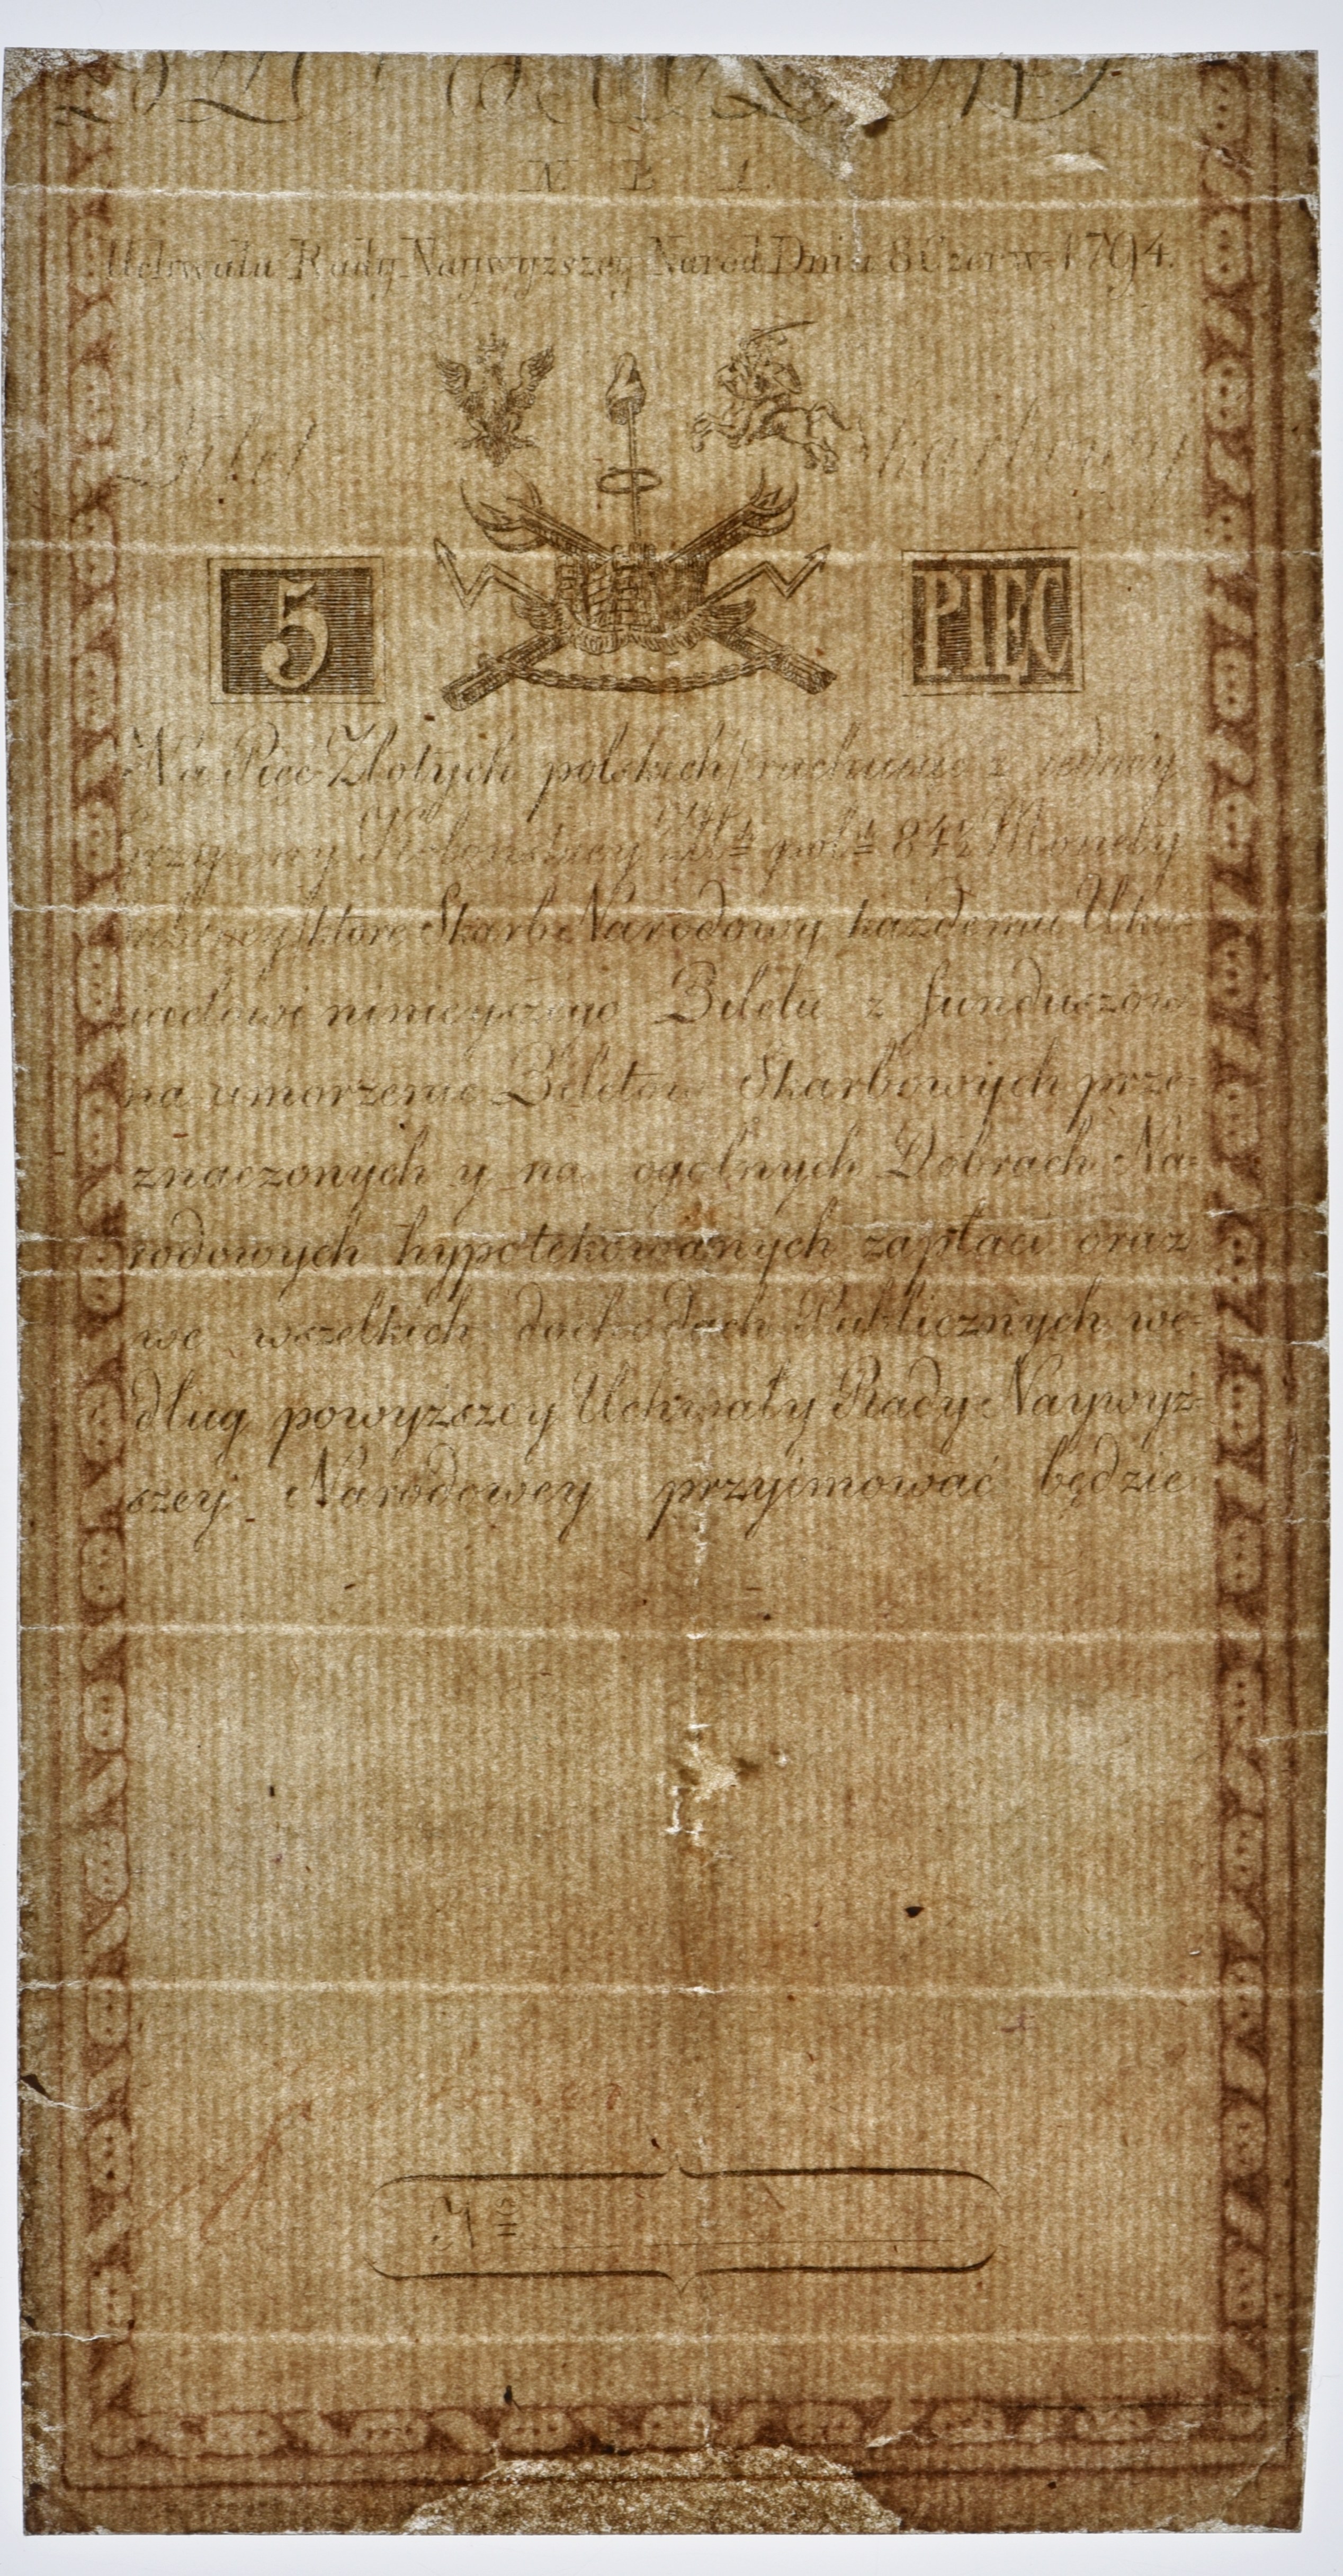 N B 1.
Uchwała Rady Naywyższey Narod Dnia 8 Czerw= 1794.
Bilet Skarbowy
5 PIĘC
Na Pięć Złotych polskich rachuiąc z iedney
grzywny Kolońskiey 84½ Monety
które Skarb Narodowy każdemu Uka=
zicielowi ninieyszego Biletu z funduszow
na umorzenie Biletow Skarbowych prze=
znaczonych y na ogolnych Dobrach Na=
rodowych hypotekowanych zapłaci oraz
we wszelkich dochodach Publicznych we=
dług powyższey Uchwały Rady Naywyż=
szey Narodowey przyimować będzie
Nº